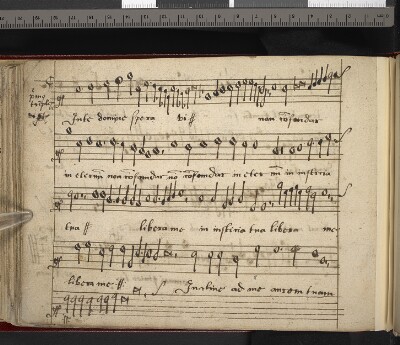 In te domine spera vi non confundar
in eternum non confundar non confundar in eternum in iusticia
tua libera me in iusticia tua libera me
libera me
Incline ad me aurem tuam